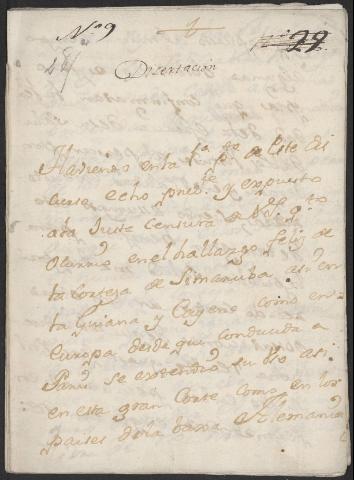 Nº 9
22.
Disertación
Haviendo en la 1ª pte de este dis
curso echo presente y expuesto
a la Justa Censura de
en el hallazgo feliz de
la Corteza de Simaruba asi en
la Guiana y Cayena como en
Europa desde que conducida a
Paris se extendió su uso asi
en esta gran Corte como en los
paises de la baxa Alemania